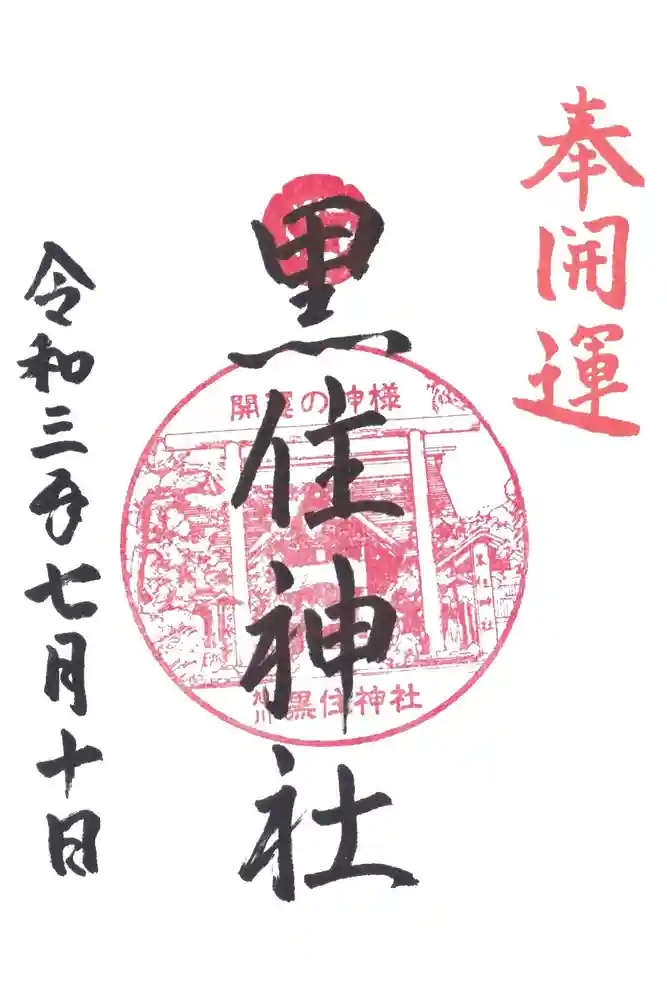 奉開運
黒住神社
開運の神様
旭川黒住神社
令和三年七月十日